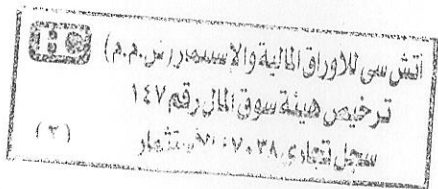 اتش سي للاوراق المالية والإستثمار (ش.م.م)
ترخيص هيئة سوق المال رقم ١٤٧
سجل تجاري ٧٠٣٨ : الاستثمار
(٢)